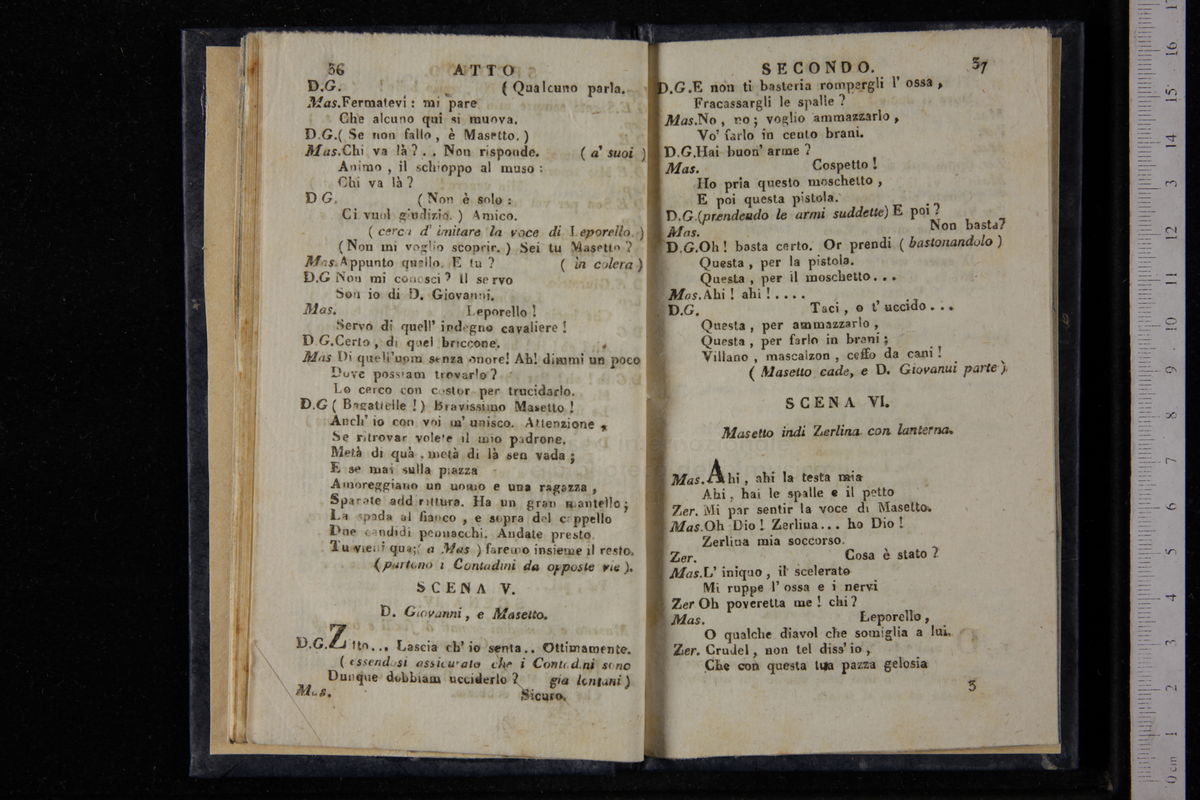 36 ATTO
D.G. ( Qualcuno parla.
Mas. Fermatevi : mi pare
Che alcuno qui si muova.
D.G. ( Se non fallo , è Masetto. )
Mas. Chi va là ? . . Non risponde. ( a' suoi )
Animo , il schioppo al muso :
Chi va là ?
D G. ( Non è solo :
Ci vuol giudizio. ) Amico.
( cerca d' imitare la voce di Leporello. )
( Non mi voglio scoprir. ) Sei tu Masetto ?
Mas. Appunto quello. E tu ? ( in colera )
D.G Non mi conosci ? Il servo
Son io di D. Giovanni.
Mas. Leporello !
Servo di quell' indegno cavaliere !
D.G. Certo , di quel briccone.
Mas Di quell'uom senza onore! Ah! dimmi un poco
Dove possiam trovarlo ?
Lo cerco con costor per trucidarlo.
D.G ( Bagatielle ! ) Bravissimo Masetto !
Anch' io con voi m' unisco. Attenzione ,
Se ritrovar volete il mio padrone.
Metà di quà , metà di là sen vada ;
E se mai sulla piazza
Amoreggiano un uomo e una ragazza ,
Sparate addirittura. Ha un gran mantello ;
La spada al fianco , e sopra del cappello
Due candidi pennacchi. Andate presto.
Tu vieni qua; ( a Mas ) faremo insieme il resto.
( partono i Contadini da opposte vie ).
SCENA V.
D. Giovanni , e Masetto.
D.G. Zitto... Lascia ch' io senta.. Ottimamente.
( essendosi assicurato che i Contadini sono
Dunque dobbiam ucciderlo ? gia lontani )
Mas. Sicuro.
SECONDO. 37
D.G. E non ti basteria rompergli l' ossa ,
Fracassargli le spalle ?
Mas. No , no ; voglio ammazzarlo ,
Vo' farlo in cento brani.
D.G. Hai buon' arme ?
Mas. Cospetto !
Ho pria questo moschetto ,
E poi questa pistola.
D.G. (prendendo le armi suddette) E poi ?
Mas. Non basta?
D.G. Oh ! basta certo. Or prendi ( bastonandolo )
Questa , per la pistola.
Questa , per il moschetto . . .
Mas. Ahi ! ahi ! . . . .
D.G. Taci , o t' uccido . . .
Questa , per ammazzarlo ,
Questa , per farlo in brani ;
Villano , mascalzon , ceffo da cani !
( Masetto cade, e D. Giovanui parte ).
SCENA VI.
Masetto indi Zerlina con lanterna.
Mas. Ahi , ahi la testa mia
Ahi , hai le spalle e il petto
Zer. Mi par sentir la voce di Masetto.
Mas. Oh Dio ! Zerlina... ho Dio !
Zerlina mia soccorso.
Zer. Cosa è stato ?
Mas. L' iniquo , il scelerato
Mi ruppe l' ossa e i nervi
Zer Oh poveretta me ! chi ?
Mas. Leporello ,
O qualche diavol che somiglia a lui.
Zer. Crudel , non tel diss' io ,
Che con questa tua pazza gelosia
3